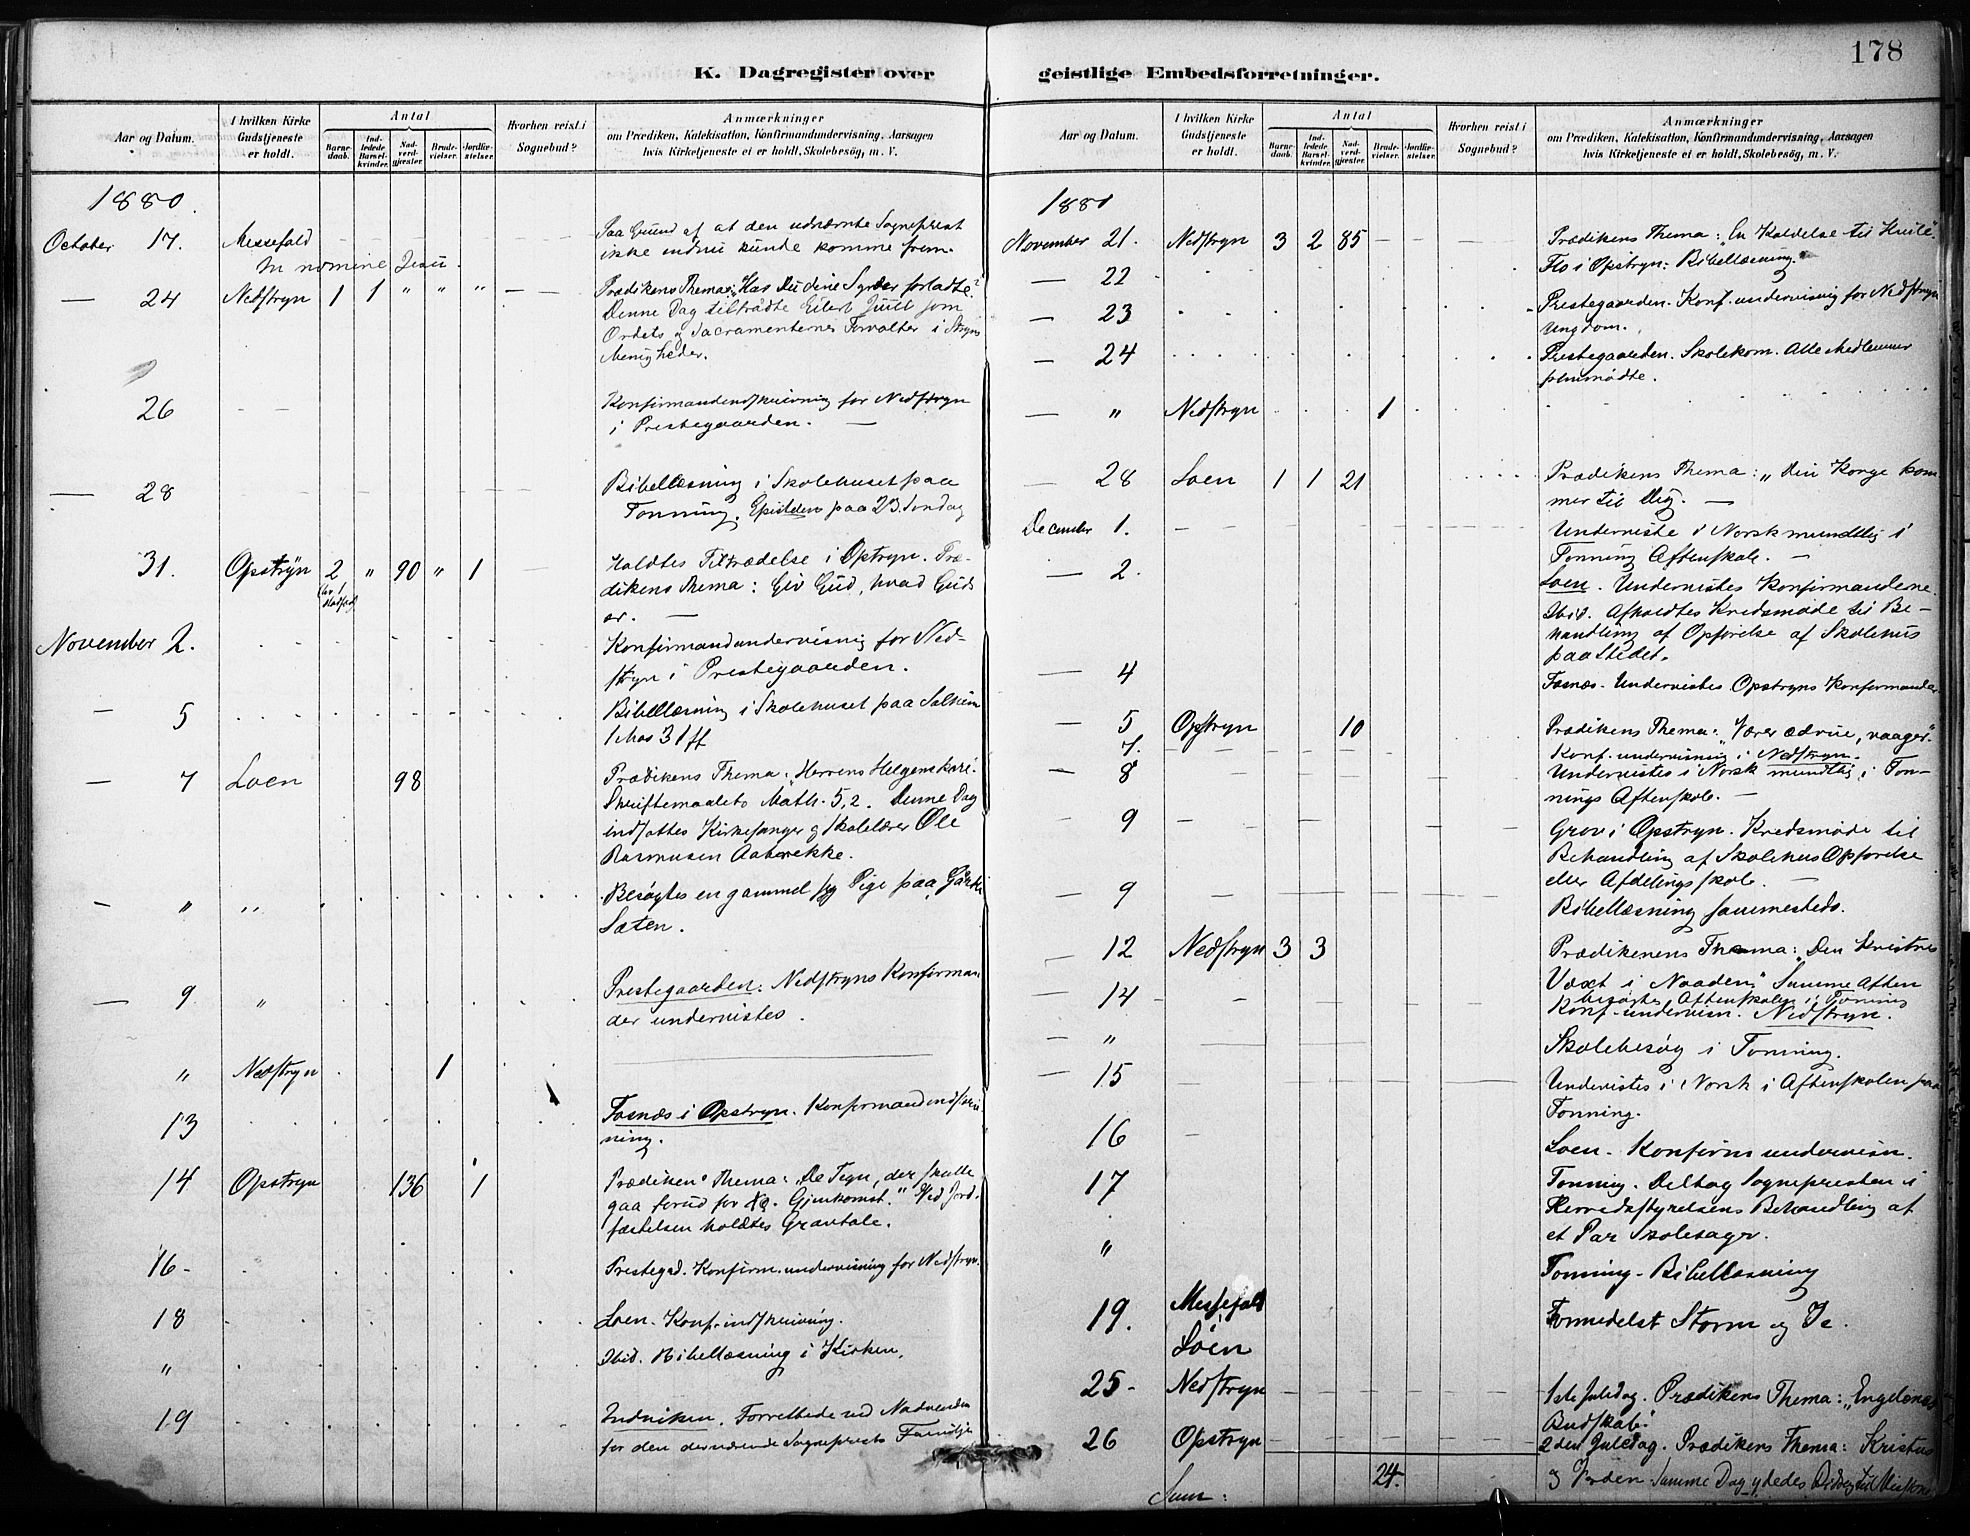 178
K. Dagregister over
geistlige Embedsforretninger.
Aar og Datum.
I hvilken Kirke Gudstjeneste er holdt.
Antal
Barnedaab.
Indledede Barselkvinder.
Nadverdgjester.
Brudevielser.
Jordfæstelser.
Hvorhen reist i Sognebud?
Anmærkninger
om Prædiken, Katekisation, Konfirmandundervisning, Aarsagen
hvis Kirketjeneste ei er holdt, Skolebesøg, m. V.
1880.
October 17. Messefald
Paa Grund af at den udnævnte Sogneprest
ikke endnu kunde komme frem.
In nomine Jesu.
— 24 Nedstryn 1 1 " " " — —
Prædikens Thema: "Har Du dine Synder forladte?
Denne Dag tiltrådte Eilert Juul som
Ordets og Sacramenternes Forvalter i Stryns
Menigheder.
26 Konfirmandindskrivning for Nedstryn
i Prestegaarden. —
— 28 Bibellæsning i Skolehuset paa
Tonning. Epistelen paa 23. Søndag
31. Opstryn 2 " 90 " 1
Holdtes Tiltrædelse i Opstryn. Præ-
dikens Thema: Giv Gud, hvad Guds
er. —
November 2. Konfirmandundervisning for Ned-
stryn i Prestegaarden.
— 5 Bibellæsning i Skolehuset paa Solheim
1 Mos 3 1 ff
— 7 Loen 98
Prædikens Thema: "Herrens Helgenskare".
Skriftemaalets Math. 5,2. Denne Dag
indsattes Kirkesanger og Skolelærer Ole
Rasmusen Aabrekke.
— " " Besøgtes en gammel syg Pige paa
Sæten.
— 9 " Prestegaarden. Nedstryns Konfirman
der undervistes.
" Nedstryn 1
13 Fosnæs i Opstryn. Konfirmandindskriv
ning.
14 Opstryn 136 1
Prædikens Thema: "De Tegn, der skulle
gaa forud for Xs. Gjenkomst." Ved Jord-
fæstelsen holdtes Gravtale.
16- Prestegd. Konfirm. undervisning for Nedstryn.
18 Loen. Konf. indskrivning.
" Ibid. Bibellæsning i Kirken.
19 Indviken. Forrettede ved Nadverden
for den derværende Sogneprests Familje
Aar og Datum.
I hvilken Kirke Gudstjeneste er holdt.
Antal
Barnedaab.
Indledede Barselkvinder.
Nadverdgjester.
Brudevielser.
Jordfæstelser.
Hvorhen reist i Sognebud?
Anmærkninger
om Prædiken, Katekisation, Konfirmandundervisning, Aarsagen
hvis Kirketjeneste ei er holdt, Skolebesøg, m. V.
1880
November 21. Nedstryn 3 2 85 — —
Prædikens Thema: "En Kaldelse til Hvile".
— 22 Flo i Opstryn: Bibellæsning.
— 23 Prestegaarden. Konf. undervisnig for Nedstryn
Ungdom.
— 24 Prestegaarden. Skolekom. Alle Medlemmer
fremmødte.
— " Nedstryn 1
— 28 Loen 1 1 21
Prædikens Thema: "Din Konge kom
mer til Dig. —
December 1. Underviste i Norsk mundtlig i
Tonning Aftenskole. —
— 2. Loen. Undervistes Konfirmanderne.
Ibid. Afholdtes Kredsmøde til Be-
handling af Opførelse af Skolehus
paa Stedet.
— 4 Fosnæs. Undervistes Opstryns Konfirmander
— 5 Opstryn 10
Prædikens Thema: "Værer ædrue, vaager".
7. Konf. undervisning i Nedstryn.
— 8 Undervistes i Norsk mundtlig i Ton-
nings Aftenskole. —
— 9 Grov i Opstryn. Kredsmøde til
Behandling af Skolehus Opførelse
eller Afdelingsskole. —
— 9 Bibellæsning sammesteds.
— 12 Nedstryn 3 3
Prædikenens Thema: "Den Kristnes
Væxt i Naaden". Samme Aften
besøgtes Aftenskolen i Tonning
— 14 Konf. undervisn. Nedstryn.
— " Skolebesøg i Tonning.
— 15 Undervistes i Norsk i Aftenskolen paa
Tonning.
16 Loen. Konfirms undervisn.
17 Tonning. Deltog Sognepresten i
Herredsstyrelsens Behandling af
et Par Skolesager.
" Tonning. Bibellæsning
19. Messefald Loen
Formedelst Storm og Is.
25- Nedstryn
1ste Juledag. Prædikens Thema: "Englenes
Budskab".
26 Opstryn
2den Juledag. Prædikens Thema: Kristus
Sum: 24.
og Verden. Samme Dag